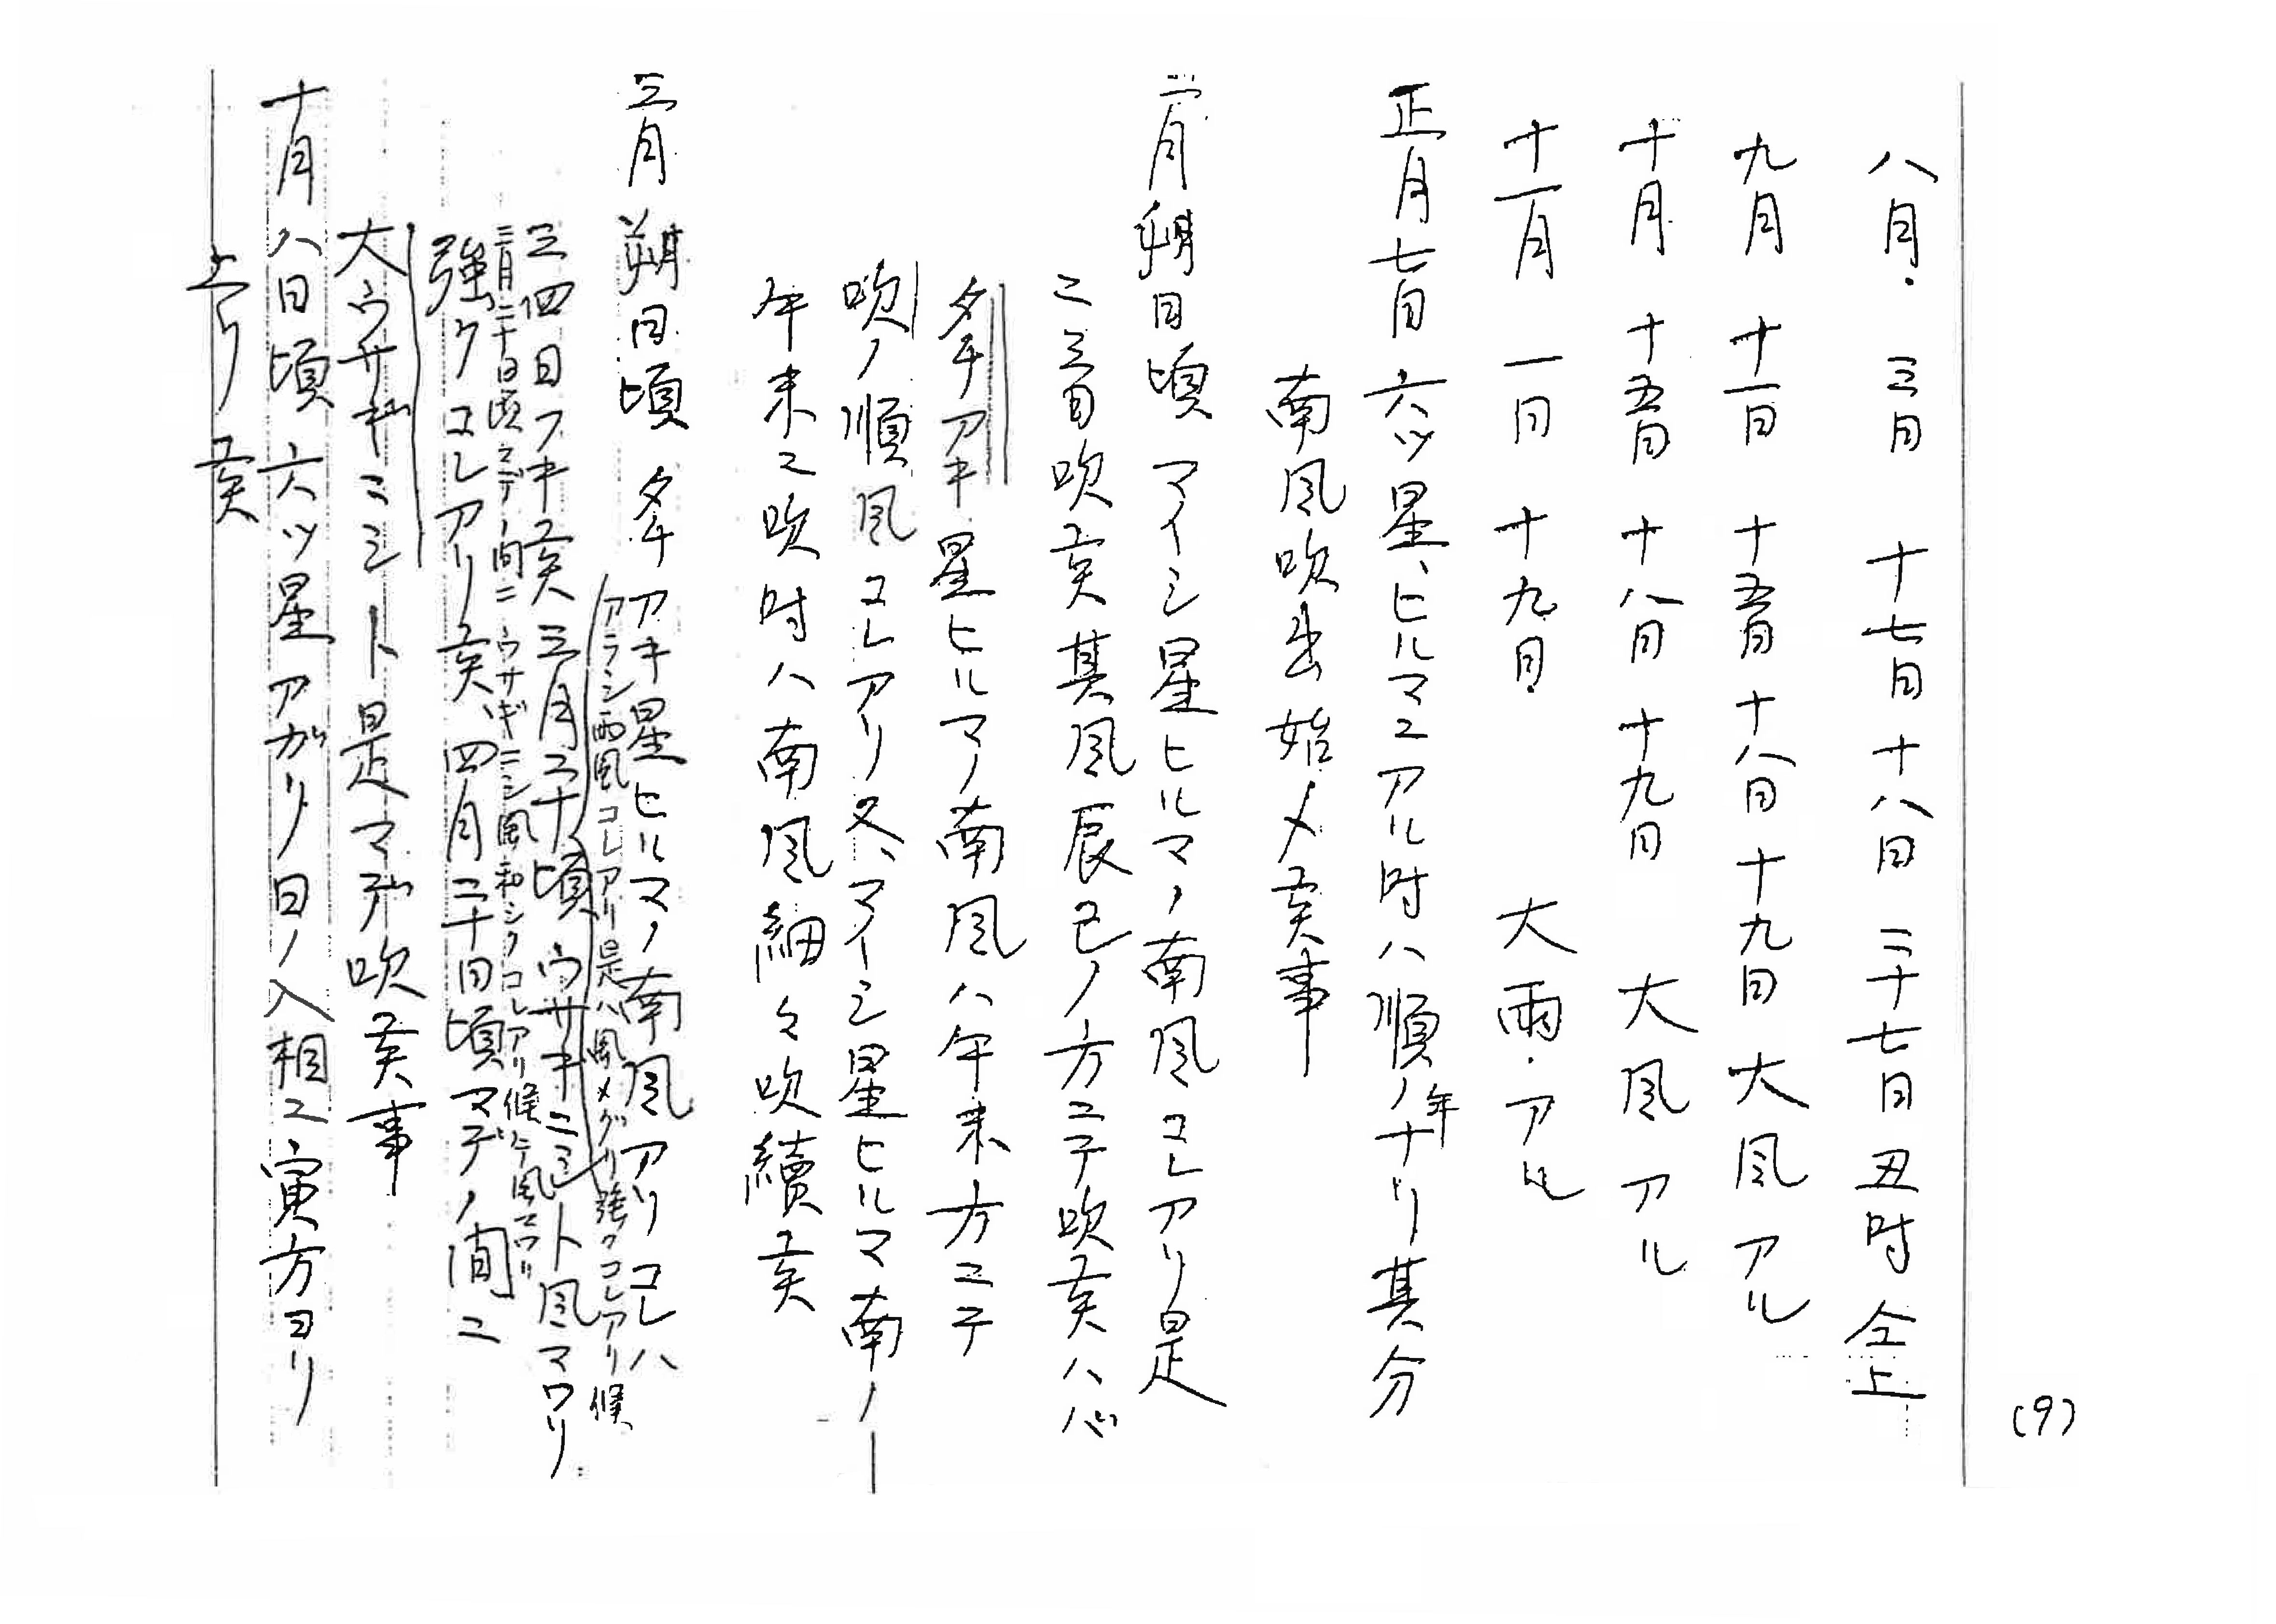 (9)
八月 三日 十七日 十八日 二十七日 丑时 仝上
九月 十一日 十五日 十八日 十九日 大風アル
十月 十五日 十八日 十九日 大風アル
十一月 一日 十九日 大雨アル
正月七日 六ツ星、ヒルマエアル时ハ順ノ年ナリ其分
南風吹出始メ矦事
二月朔日頃 マイシ星ヒルマノ南風コレアリ是
二三日吹矦其風辰巳ノ方ニテ吹矦ハバ
タチアキ星ヒルマノ南風ハ午未方ニテ
吹ノ順風コレアリ又、マイシ星ヒルマ南ノ
午未ニ吹时ハ南風細々吹續矦
三月朔日頃 タチアキ星ヒルマノ南風アリコレハ
アラシ雨風コレアリ是ハ風メグリ強クコレアリ候
三四日フキ矦三月二十頃ウサキニシト風マワリ
三月二十日頃マデノ間ニウサギニシ風和シクコレアリ候ニテ風マワリ
強クコレアリ矦、四月二十日頃マデノ間ニ
大ウサギニシト是マデ吹矦事
十月八日頃六ツ星アガリノ日ノ入相ニ寅方ヨリ
上リ矦